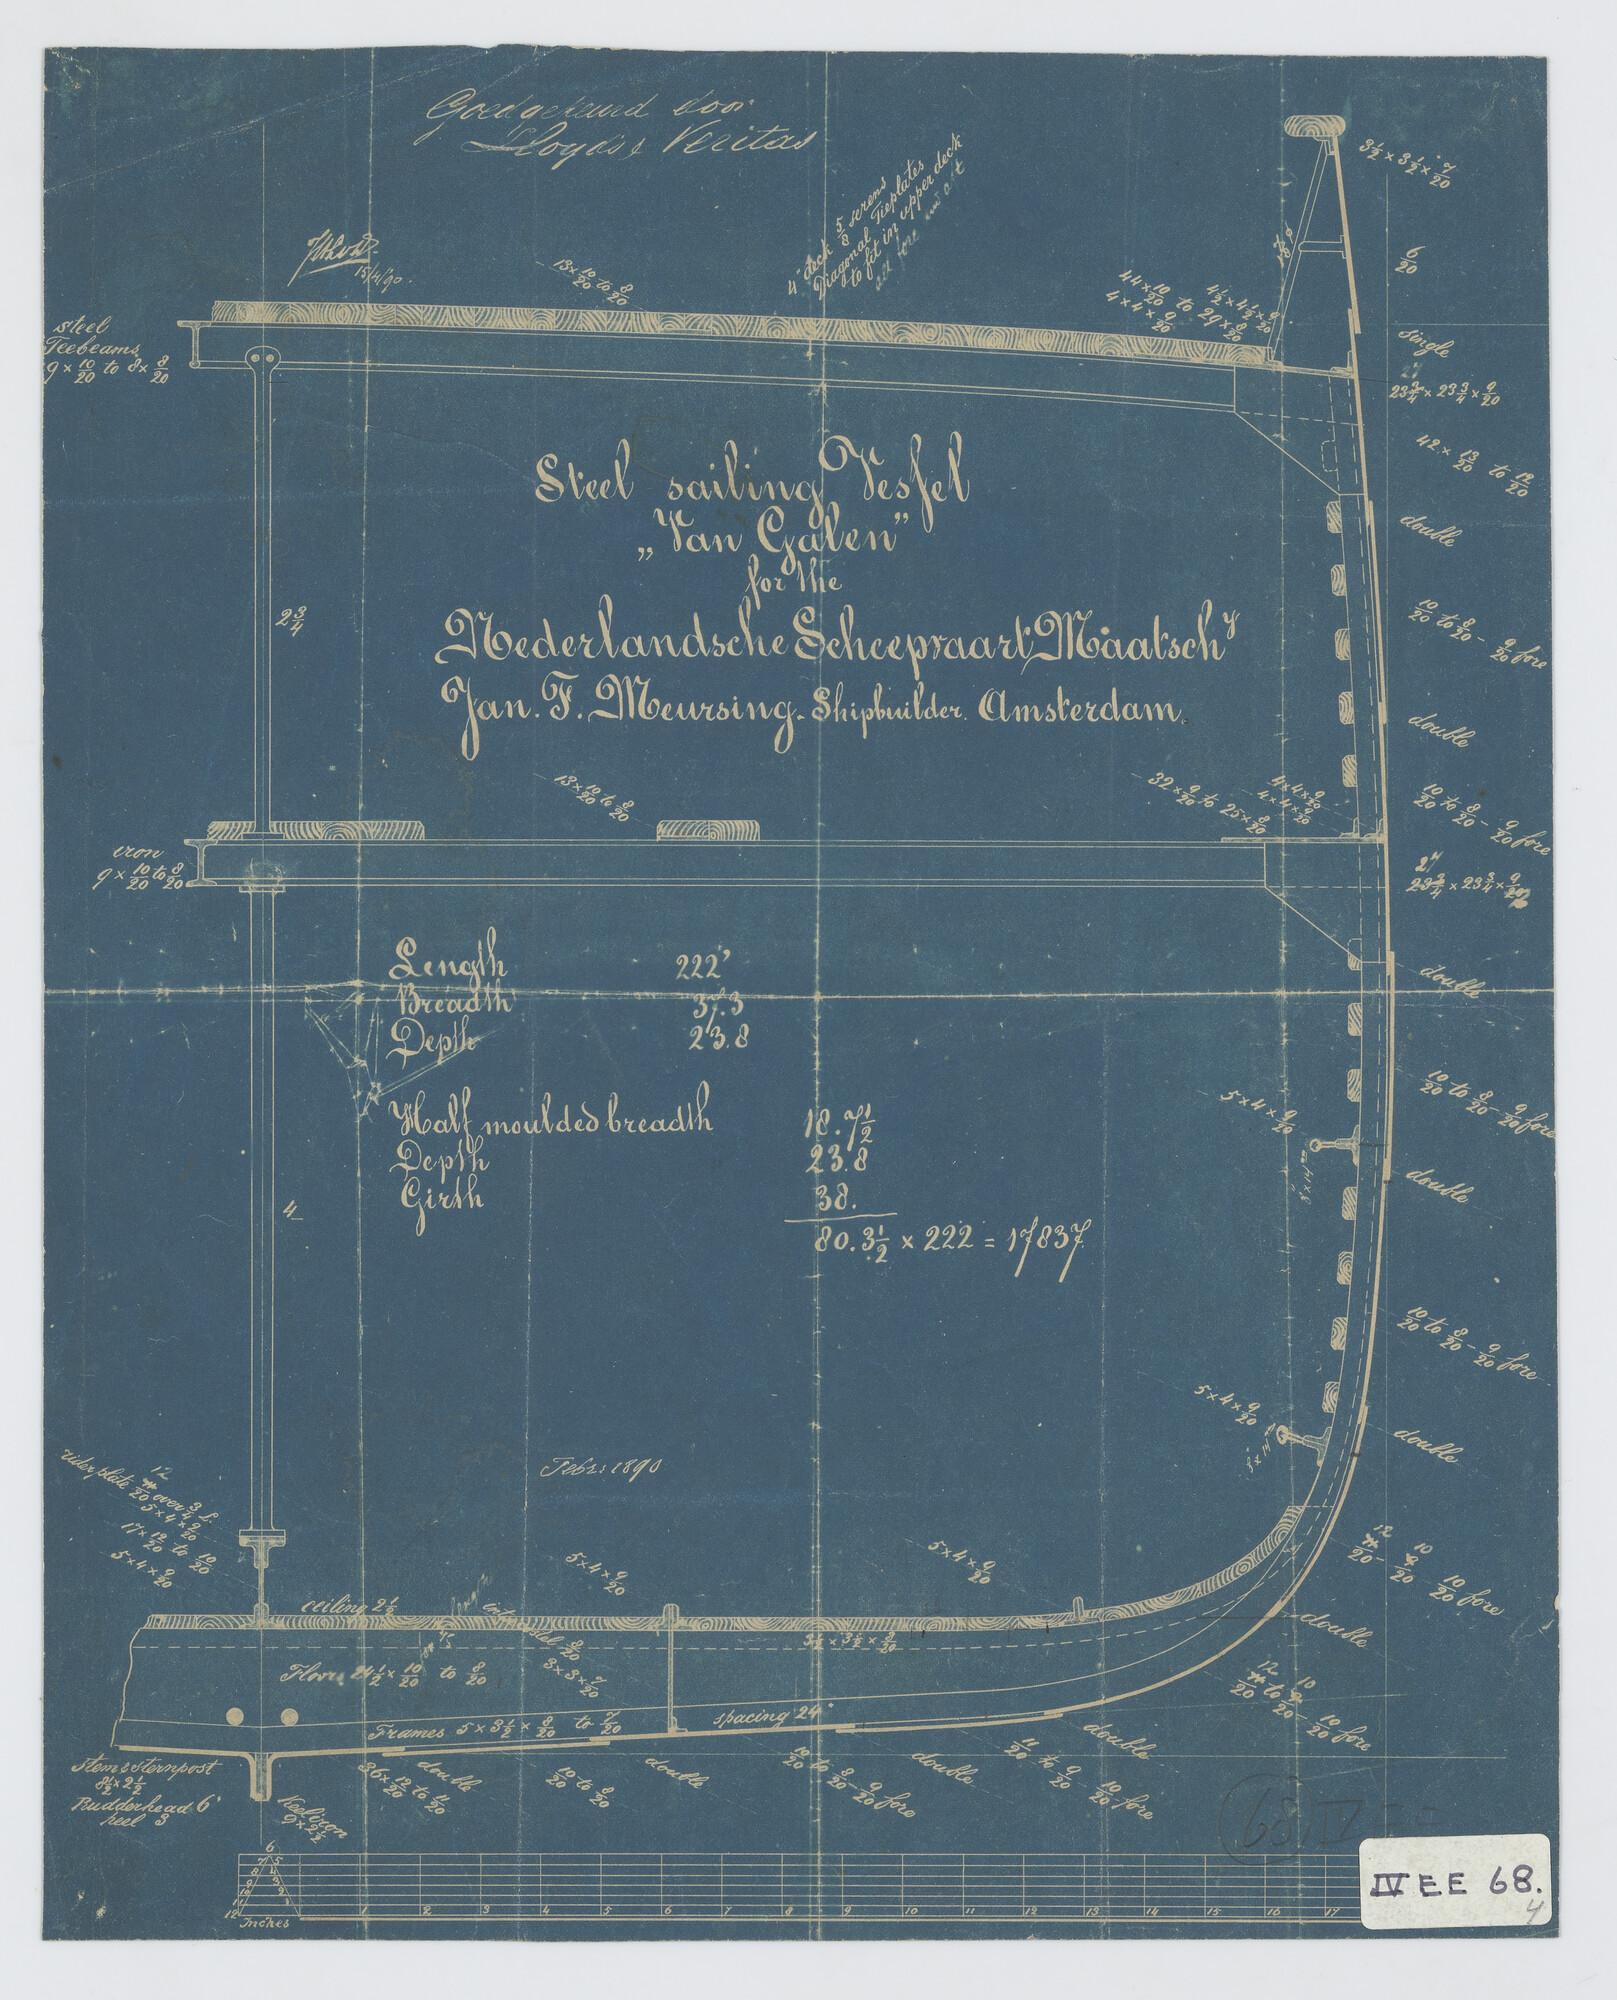 Goedgekeurd door
Lloyds & Veritas
15/4/90.
4" deck 5/8 screws
Diagonal Tieplates
to fit in upper deck
all fore and aft
3½ × 3½ × 7/20
6/20
13 × 10/20 to 8/20
44 × 10/20 to 29 × 8/20
4 × 4 × 9/20
4½ × 4½ × 9/20
steel
Teebeams
9 × 10/20 to 8 × 8/20
single
23¾ × 23¾ × 9/20
42 × 13/20 to 12/20
Steel sailing Vessel
„Van Galen"
for the
Nederlandsche Scheepvaart Maatschy
Jan. F. Meursing. Shipbuilder. Amsterdam.
double
2¾
10/20 to 8/20 - 9/20 fore
double
13 × 10/20 to 8/20
32 × 9/20 to 25 × 8/20
4 × 4 × 9/20
4 × 4 × 9/20
10/20 to 8/20 - 9/20 fore
iron
9 × 10/20 to 8/20
23¾ × 23¾ × 9/20
Length 222'
Breadth 37.3
Depth 23.8
double
Half moulded breadth 18.7½
Depth 23.8
Girth 38.
80.3½ × 222 = 17837
10/20 to 8/20 - 9/20 fore
5 × 4 × 9/20
double
4
10/20 to 8/20 - 9/20 fore
5 × 4 × 9/20
double
Febr: 1890
riderplate 12/20 over ¾ L.
5 × 4 × 9/20
17 × 12/20 to 10/20
5 × 4 × 9/20
5 × 4 × 9/20
5 × 4 × 9/20
12/20 - 10/20 - 10/20 fore
double
ceiling 2½
3½ × 3½ × 8/20
8/20
3 × 3 × 7/20
Floors 24½ × 10/20 to 8/20
12/20 to 10/20 - 10/20 fore
Frames 5 × 3½ × 8/20 to 7/20
spacing 24"
double
Stem & Sternpost
8½ × 2½
Rudderhead 6"
heel 3
Keel iron
9 × 2½
36 × 12/20 to 11/20
double
10/20 to 8/20
double
10/20 to 8/20 - 9/20 fore
double
11/20 to 9/20 - 10/20 fore
68 IV EE
12 9 8 7 6 5 4 3
Inches
1 2 3 4 5 6 7 8 9 10 11 12 13 14 15 16 17
IV EE 68.
4